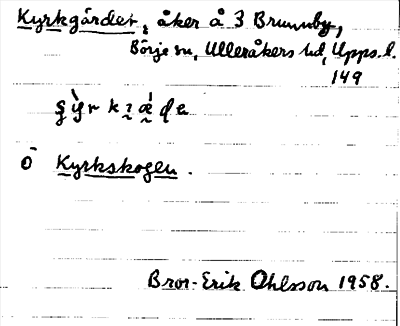 Kyrkgärdet, åker å 3 Brunnby,
Börje sn, Ulleråkers hd, Upps. l.
149
Ö Kyrkskogen.
Bror-Erik Ohlsson 1958.